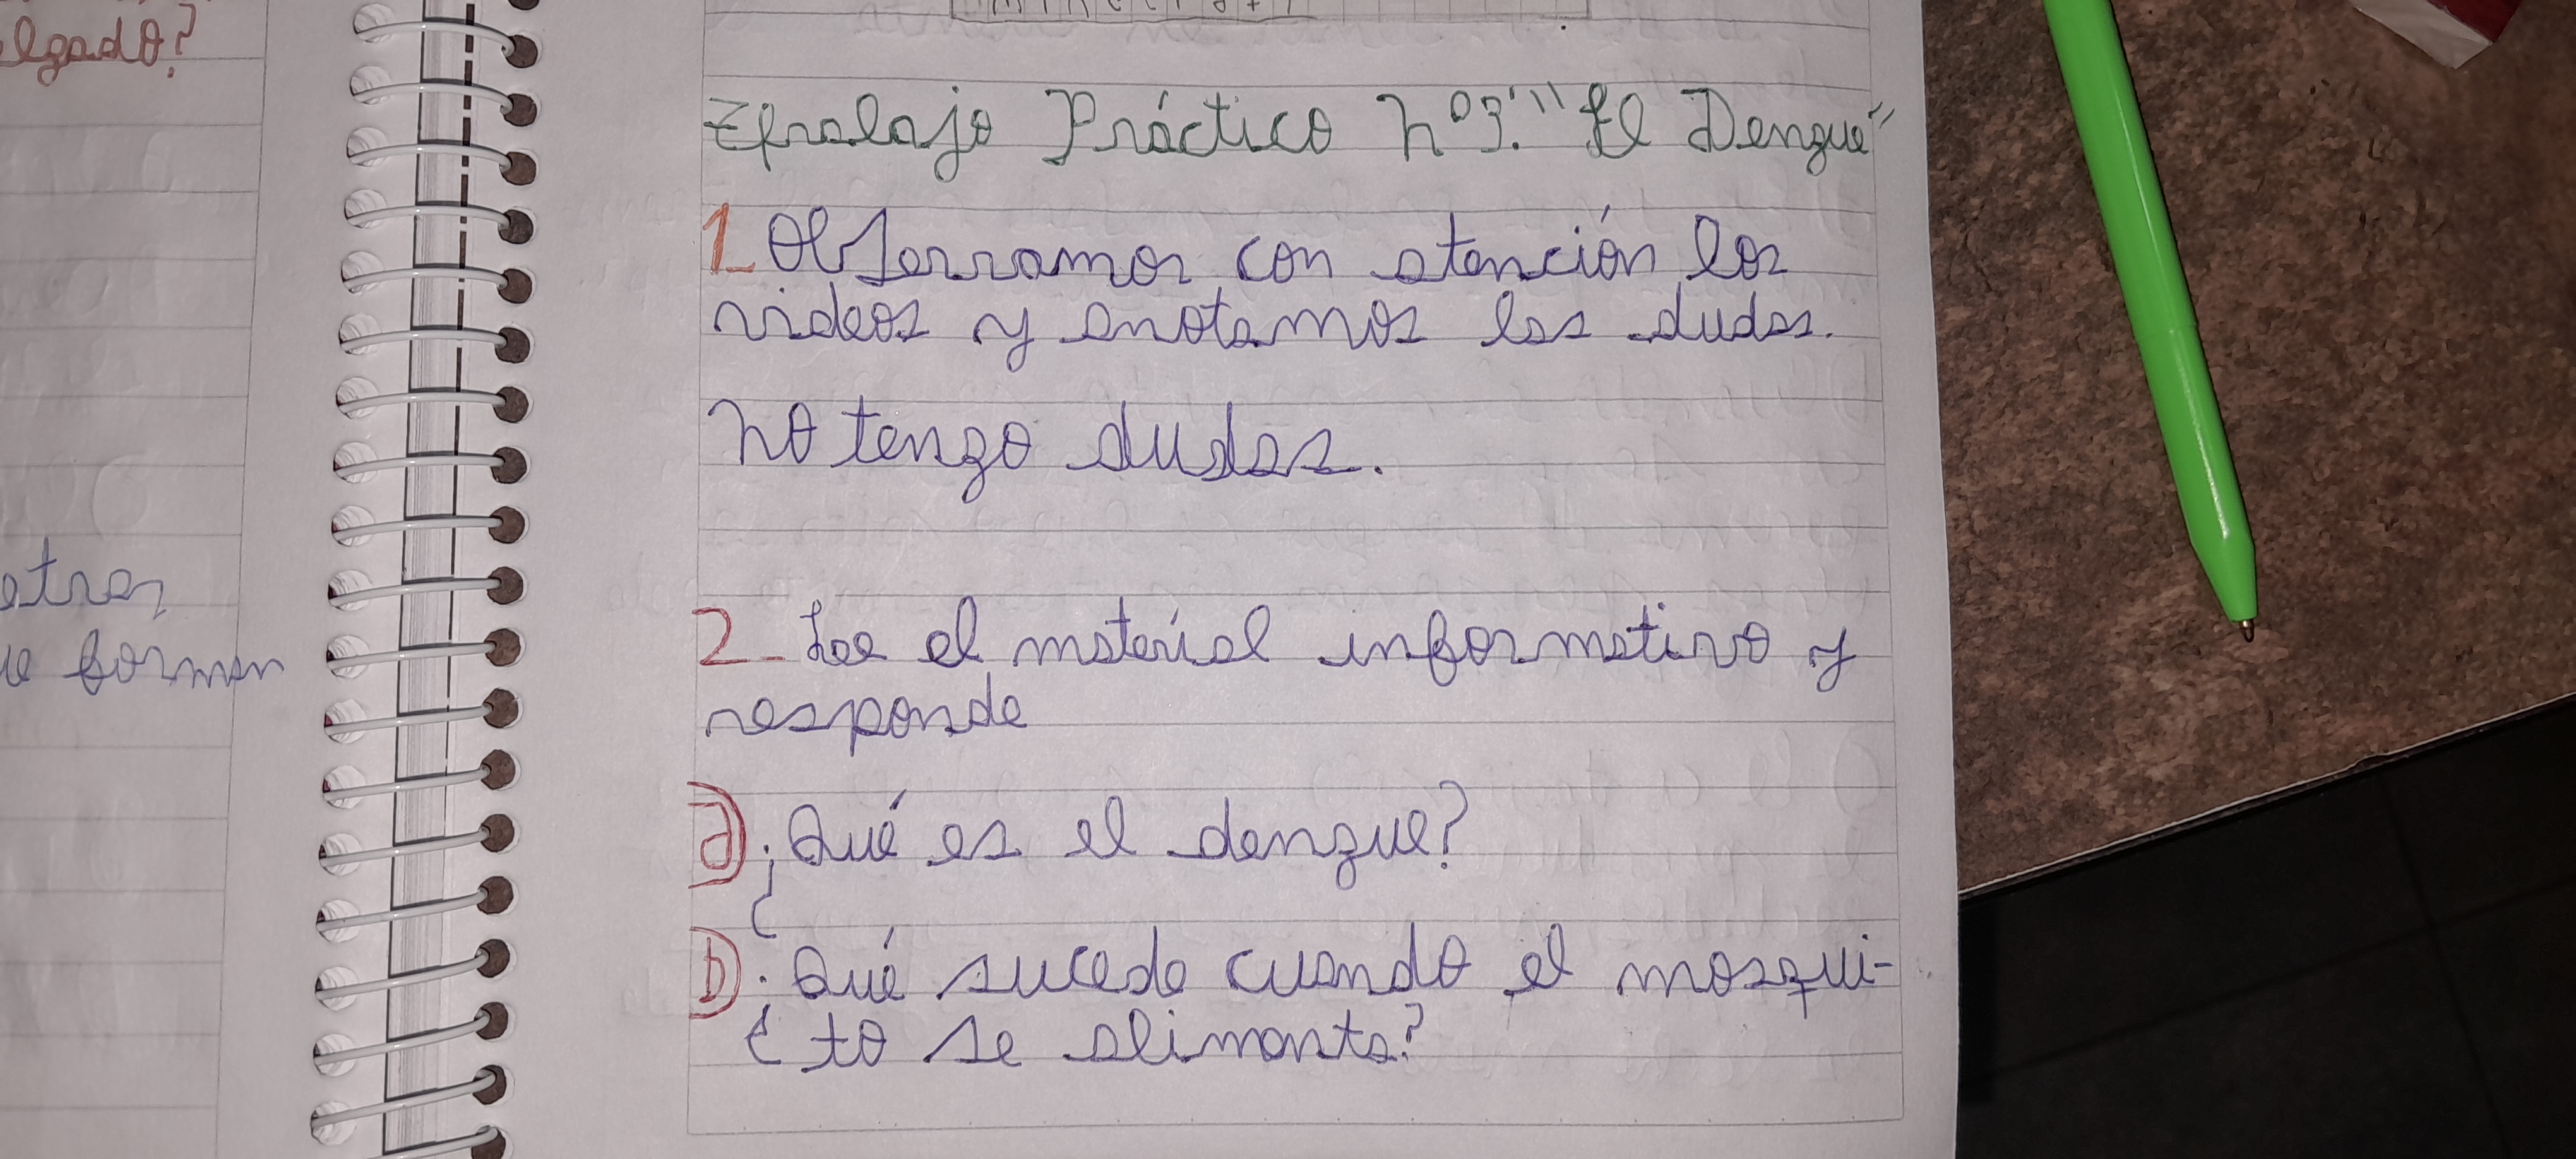 elgado?
etras
ue forman
Trabajo Práctico N°3: "El Dengue"
1_ Observamos con atención los
videos y anotamos las dudas.
No tengo dudas.
2_ Lee el material informativo y
responde
a) ¿Qué es el dengue?
b) ¿Qué sucede cuando el mosqui-
to se alimenta?